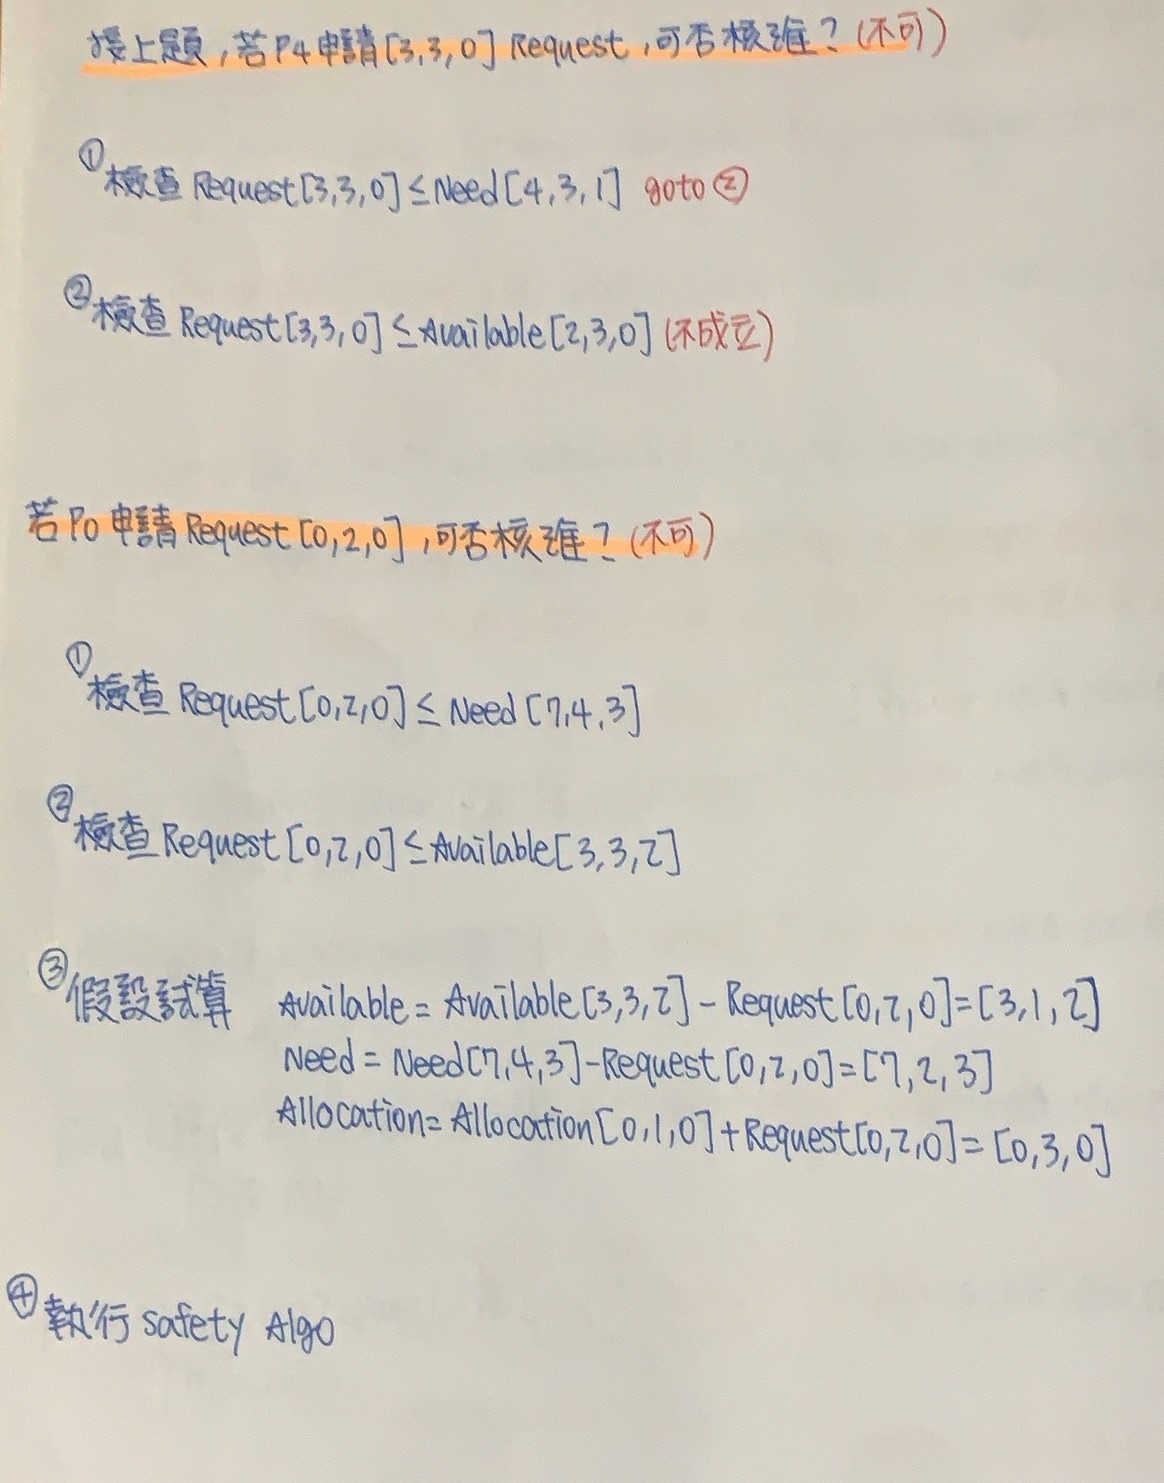 接上題,若P4申請[3,3,0] Request,可否核准?(不可)
①檢查 Request[3,3,0]≤Need[4,3,1] goto②
②檢查 Request[3,3,0]≤Available[2,3,0](不成立)
若P0申請Request[0,2,0],可否核准?(不可)
①檢查 Request[0,2,0]≤Need[7,4,3]
②檢查 Request[0,2,0]≤Available[3,3,2]
③假設試算 Available=Available[3,3,2]-Request[0,2,0]=[3,1,2]
Need=Need[7,4,3]-Request[0,2,0]=[7,2,3]
Allocation=Allocation[0,1,0]+Request[0,2,0]=[0,3,0]
④執行 Safety Algo